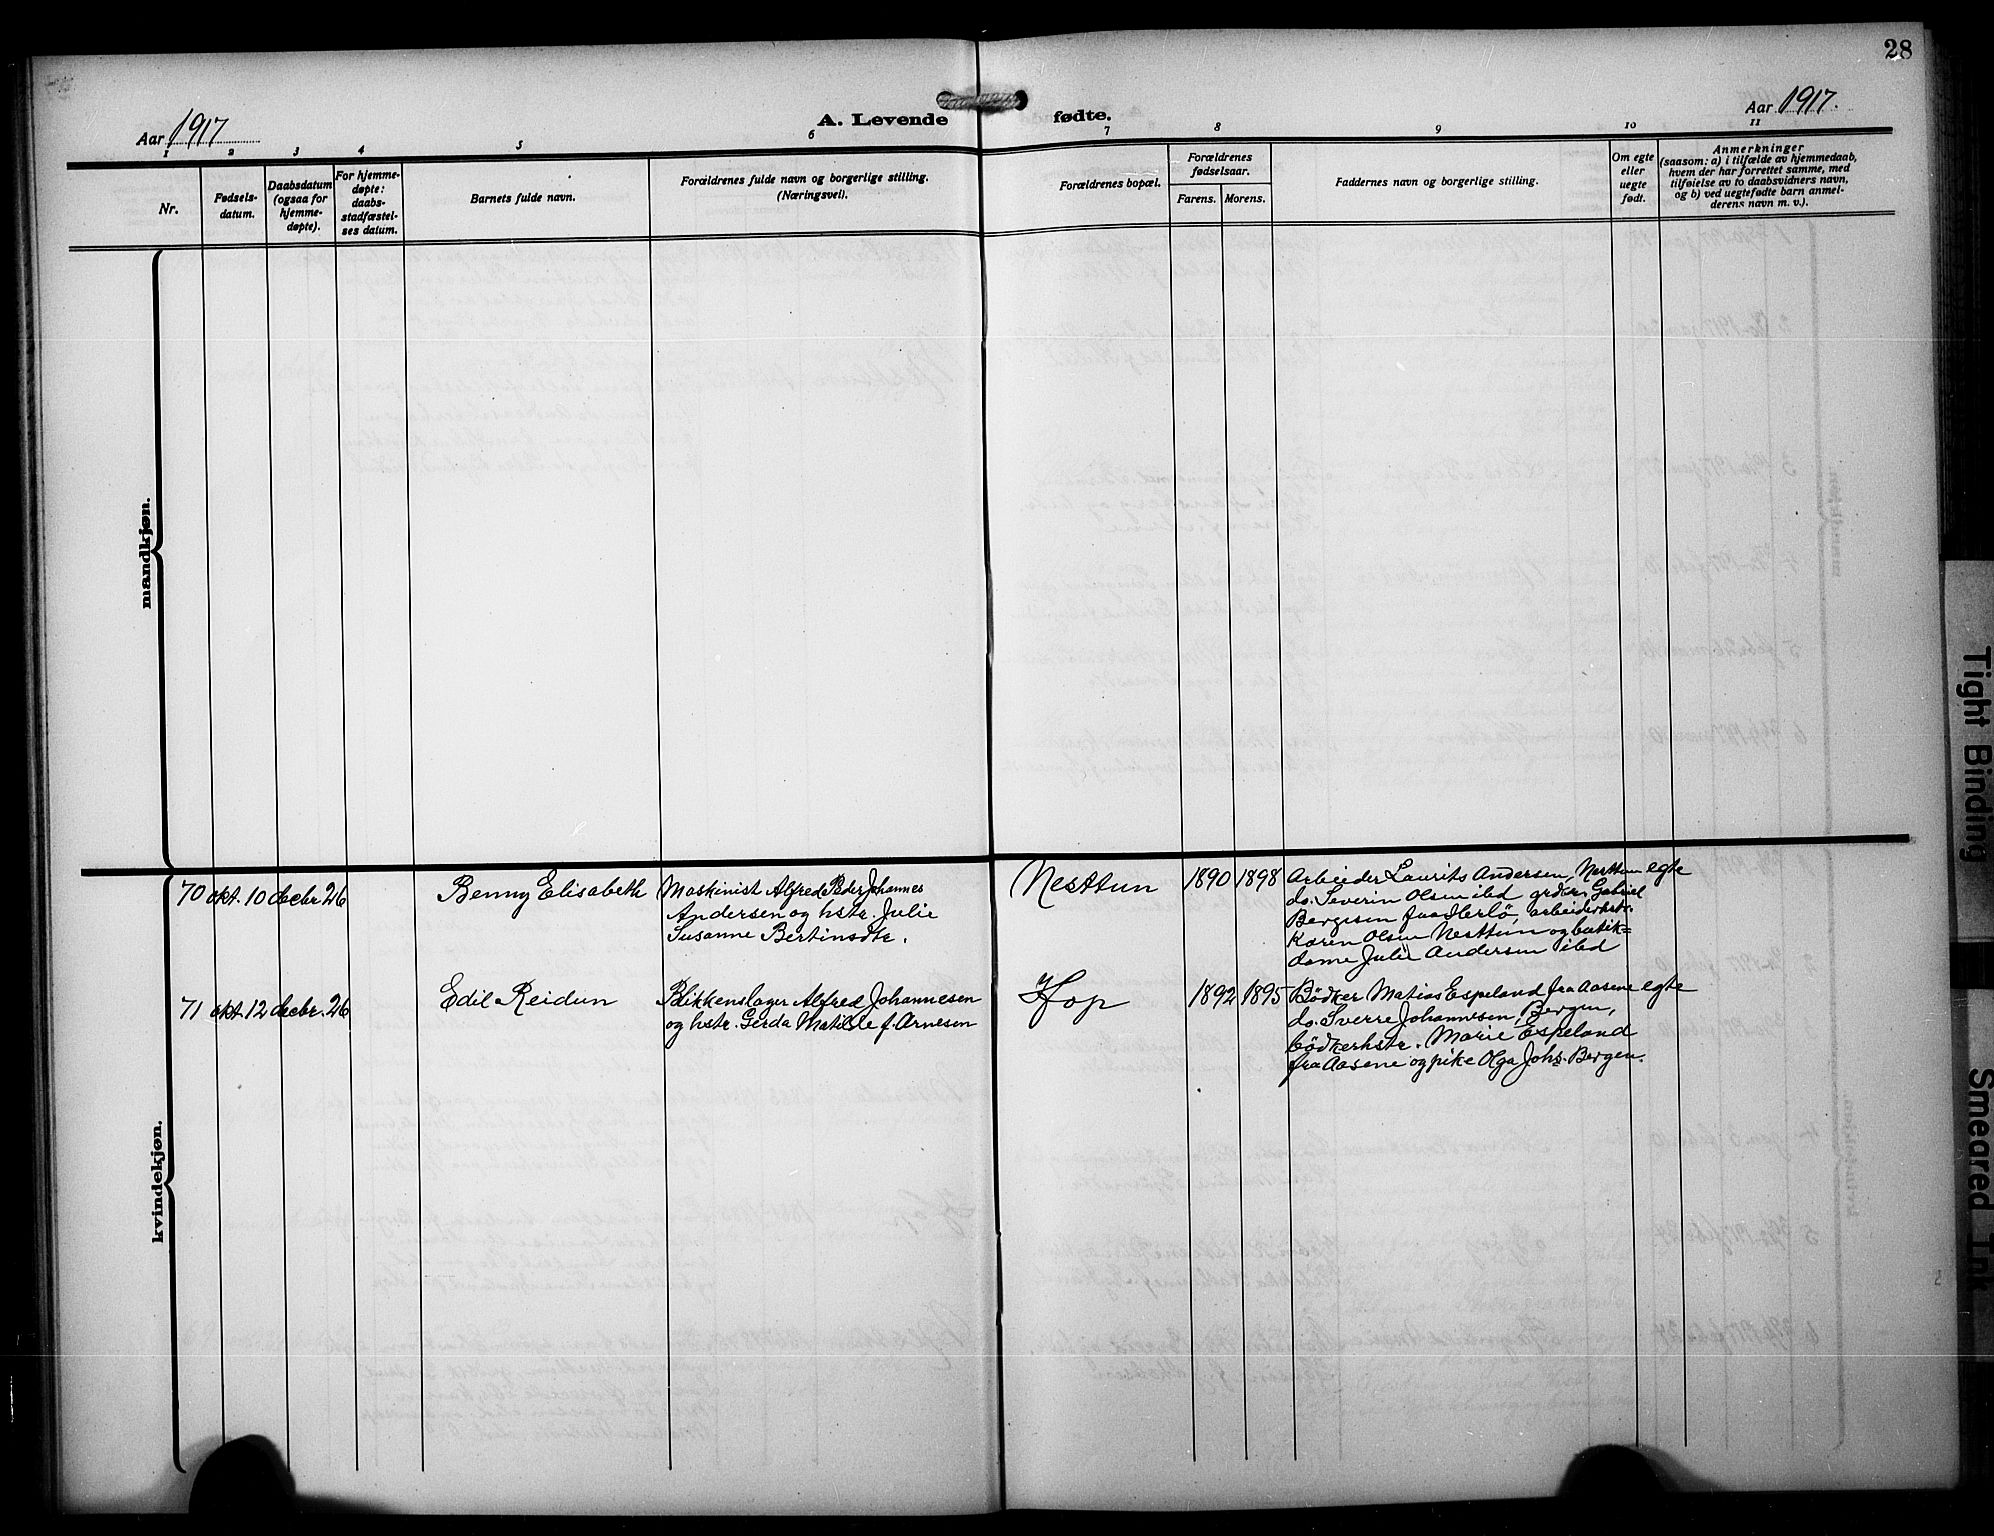 28
Aar 1917
A. Levende fødte.
Aar 1917.
1 2 3 4 5 6 7 8 9 10 11
Nr.
Fødsels-
datum.
Daabsdatum
(ogsaa for
hjemme-
døpte).
For hjemme-
døpte:
daabs-
stadfæstel-
ses datum.
Barnets fulde navn.
Forældrenes fulde navn og borgerlige stilling.
(Næringsvei).
Forældrenes bopæl.
Forældrenes
fødselsaar.
Farens. Morens.
Faddernes navn og borgerlige stilling.
Om egte
eller
uegte
født.
Anmerkninger
(saasom: a) i tilfælde av hjemmedaab,
hvem der har forrettet samme, med
tilføielse av to daabsvidners navn,
og b) ved uegtefødte barn anmel-
derens navn m. v.).
mandkjøn.
kvindekjøn.
70 okt. 10 decbr. 26
Benny Elisabeth
Maskinist Alfred Peder Johannes
Andersen og hstr. Julie
Susanne Bertinsdtr.
Nesttun
1890 1898
Arbeider Laurits Andersen, Nesttun
do. Severin Olsen ibd grdbr. Gabriel
Bergesen fra Herlö, arbeiderhstr.
Karen Olsen Nesttun og butik=
dame Julie Andersen ibd
egte
71 okt. 12 decbr. 26
Edil Reidun
Blikkenslager Alfred Johannesen
og hstr. Gerda Matilde f. Arnesen
Hop
1892 1895
Bödker Matias Espeland fra Aasene
do. Sverre Johannesen, Bergen,
bödkerhstr. Marie Espeland
fra Aasene og pike Olga Johs. Bergen.
egte
Tight Binding
Smeared Ink